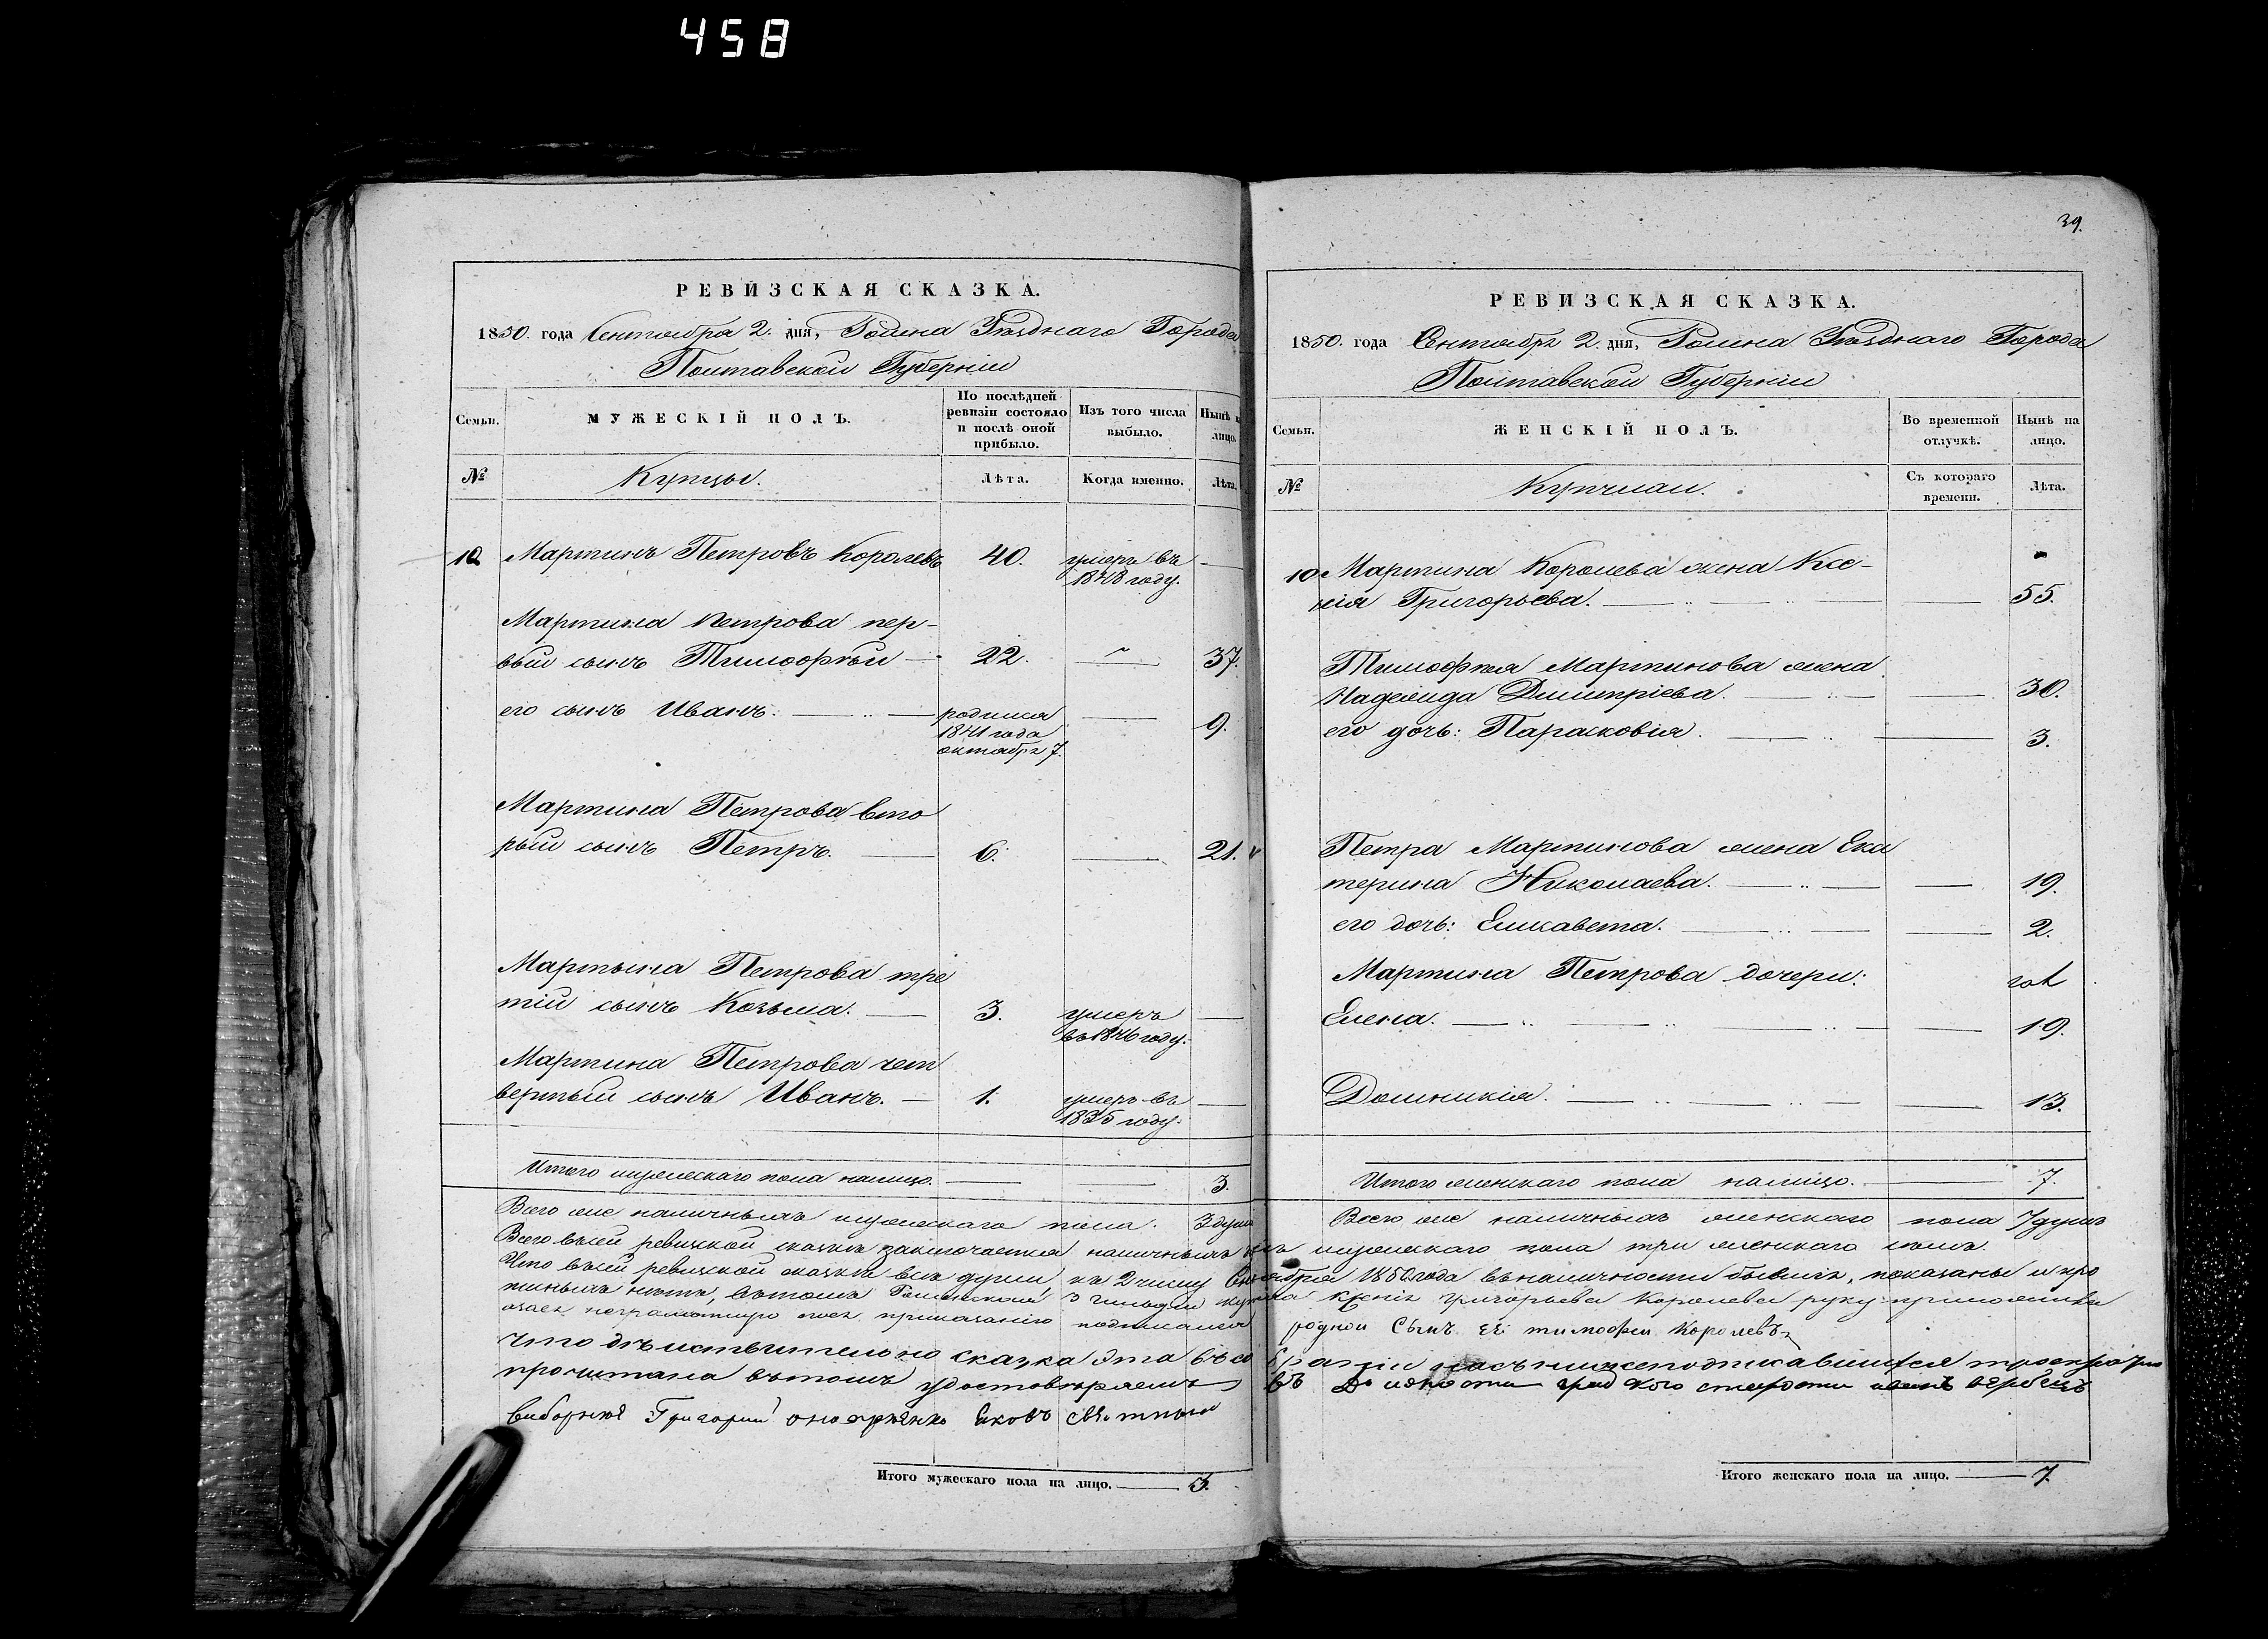 458
РЕВИЗСКАЯ СКАЗКА.
1850. года Сентября 2. дня, Ромна Уѣзднаго Города
Полтавской Губерніи
Семьи. МУЖЕСКІЙ ПОЛЪ. По послѣдней ревизіи состояло и послѣ оной прибыло. Изъ того числа выбыло. Нынѣ на лицо.
№ Купцы. Лѣта. Когда именно. Лѣта.
10. Мартинъ Петровъ Королевъ 40. умеръ въ
1848 году.
Мартина Петрова пер-
вый сынъ Тимофѣй 22. 37.
его сынъ Иванъ. родился 9.
1841 года
октября 7.
Мартина Петрова вто
рый сынъ Петръ. 6. 21.
Мартына Петрова тре
тій сынъ Козьма. 3. умеръ
въ 1846 году.
Мартина Петрова чет
вертый сынъ Иванъ. 1. умеръ въ
1835 году.
Итого мужескаго пола налицо. 3.
Всего же наличныхъ мужескаго пола. 3 души
39.
РЕВИЗСКАЯ СКАЗКА.
1850. года Сентября 2. дня, Ромна Уѣзднаго Города
Полтавской Губерніи
Семьи. ЖЕНСКІЙ ПОЛЪ. Во временной отлучкѣ. Нынѣ на лицо.
№ Купчихи. Съ котораго времени. Лѣта.
10. Мартина Королева жена Ксе-
нія Григорьева. 55.
Тимофѣя Мартинова жена
Надежда Дмитріева. 30.
его дочь: Парасковія. 3.
Петра Мартинова жена Ека
терина Николаева. 19.
его дочь: Елисавета. 2.
Мартина Петрова дочери:
Елена. 19.
Домникія. 13.
Итого женскаго пола налицо. 7.
Всего же наличныхъ женскаго пола 7 душъ
Всего въ сей ревизской сказкѣ заключается наличныхъ мужескаго пола три женскаго семь.
Что въ сей ревизской сказкѣ всѣ души, къ 2 числу Сентября 1850 года въ наличности бывшіе, показаны и про
писныхъ нѣтъ, въ томъ Роменской 3 гильдіи Григорьева Королева руку приложила
родной Сынъ ея тимофей Королевъ
что дѣиствительно сказка эта
прочитана въ томъ удостовѣряемъ
виборные Григорий
Итого мужескаго пола на лицо. 3.
Итого женскаго пола на лицо. 7.